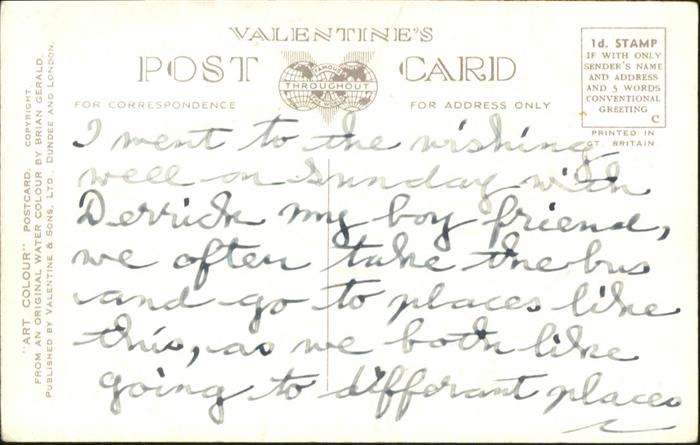 VALENTINE'S
POST CARD
FAMOUS
THROUGHOUT
FOR CORRESPONDENCE
FOR ADDRESS ONLY
1d. STAMP
IF WITH ONLY
SENDER'S NAME
AND ADDRESS
AND 5 WORDS
CONVENTIONAL
GREETING
C
PRINTED IN
GT. BRITAIN
"ART COLOUR" POSTCARD. COPYRIGHT
FROM AN ORIGINAL WATER COLOUR BY BRIAN GERALD.
PUBLISHED BY VALENTINE & SONS, LTD., DUNDEE AND LONDON.
I went to the wishing
well on Sunday with
Derrick my boy friend,
we often take the bus
and go to places like
this, as we both like
going to differant places